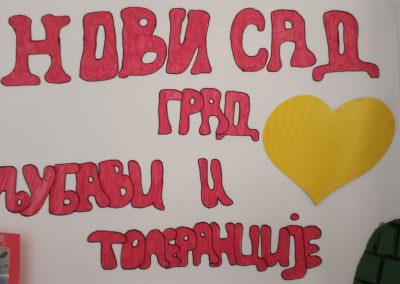 НОВИ САД
ГРАД
ЉУБАВИ И
ТОЛЕРАНЦИЈЕ